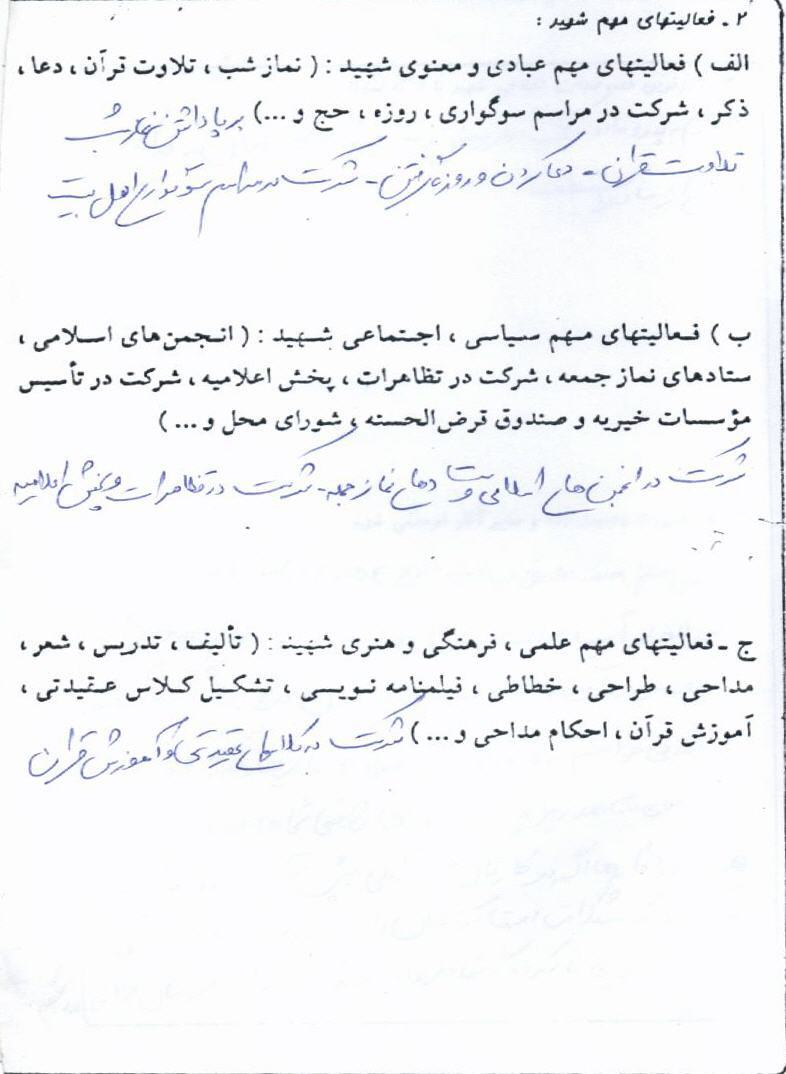 ۲ ـ فعالیتهای مهم شهید :
الف ) فعالیتهای مهم عبادی و معنوی شهید : ( نماز شب ، تلاوت قرآن ، دعا ،
ذکر ، شرکت در مراسم سوگواری ، روزه ، حج و ...) برپا داشتن نماز شب
تلاوت قرآن - دعا کردن و روزه گرفتن - شرکت در مراسم سوگواری اهل بیت
ب ) فـعالیتهای مـهم سـیاسی ، اجـتماعی شـهید : ( انـجمن‌های اسـلامی ،
ستادهای نماز جمعه ، شرکت در تظاهرات ، پخش اعلامیه ، شرکت در تأسیس
مؤسسات خیریه و صندوق قرض‌الحسنه ، شورای محل و ... )
شرکت در انجمن های اسلامی و ستادهای نماز جمعه - شرکت در تظاهرات و پخش اعلامیه
ج ـ فعالیتهای مهم علمی ، فرهنگی و هنری شهید : ( تألیف ، تدریس ، شعر ،
مداحی ، طراحی ، خطاطی ، فیلمنامه نـویسی ، تشکـیل کـلاس عـقیدتی ،
آموزش قرآن ، احکام مداحی و ... ) شرکت در کلاسهای عقیدتی و آموزش قرآن